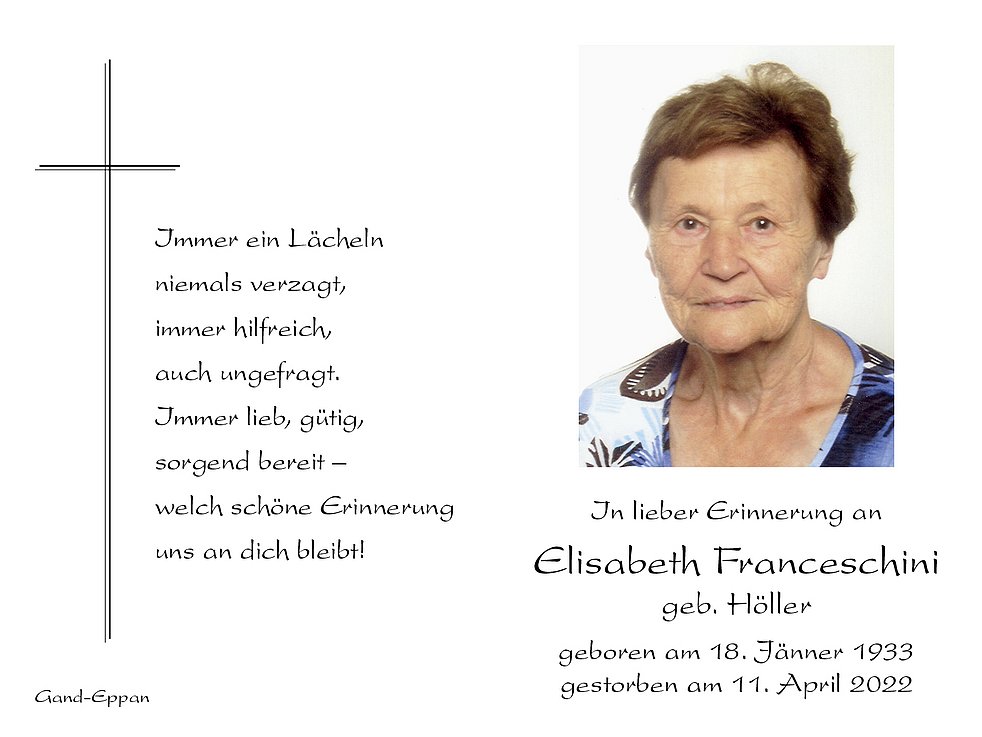 Immer ein Lächeln
niemals verzagt,
immer hilfreich,
auch ungefragt.
Immer lieb, gütig,
sorgend bereit –
welch schöne Erinnerung
uns an dich bleibt!
Gand-Eppan
In lieber Erinnerung an
Elisabeth Franceschini
geb. Höller
geboren am 18. Jänner 1933
gestorben am 11. April 2022